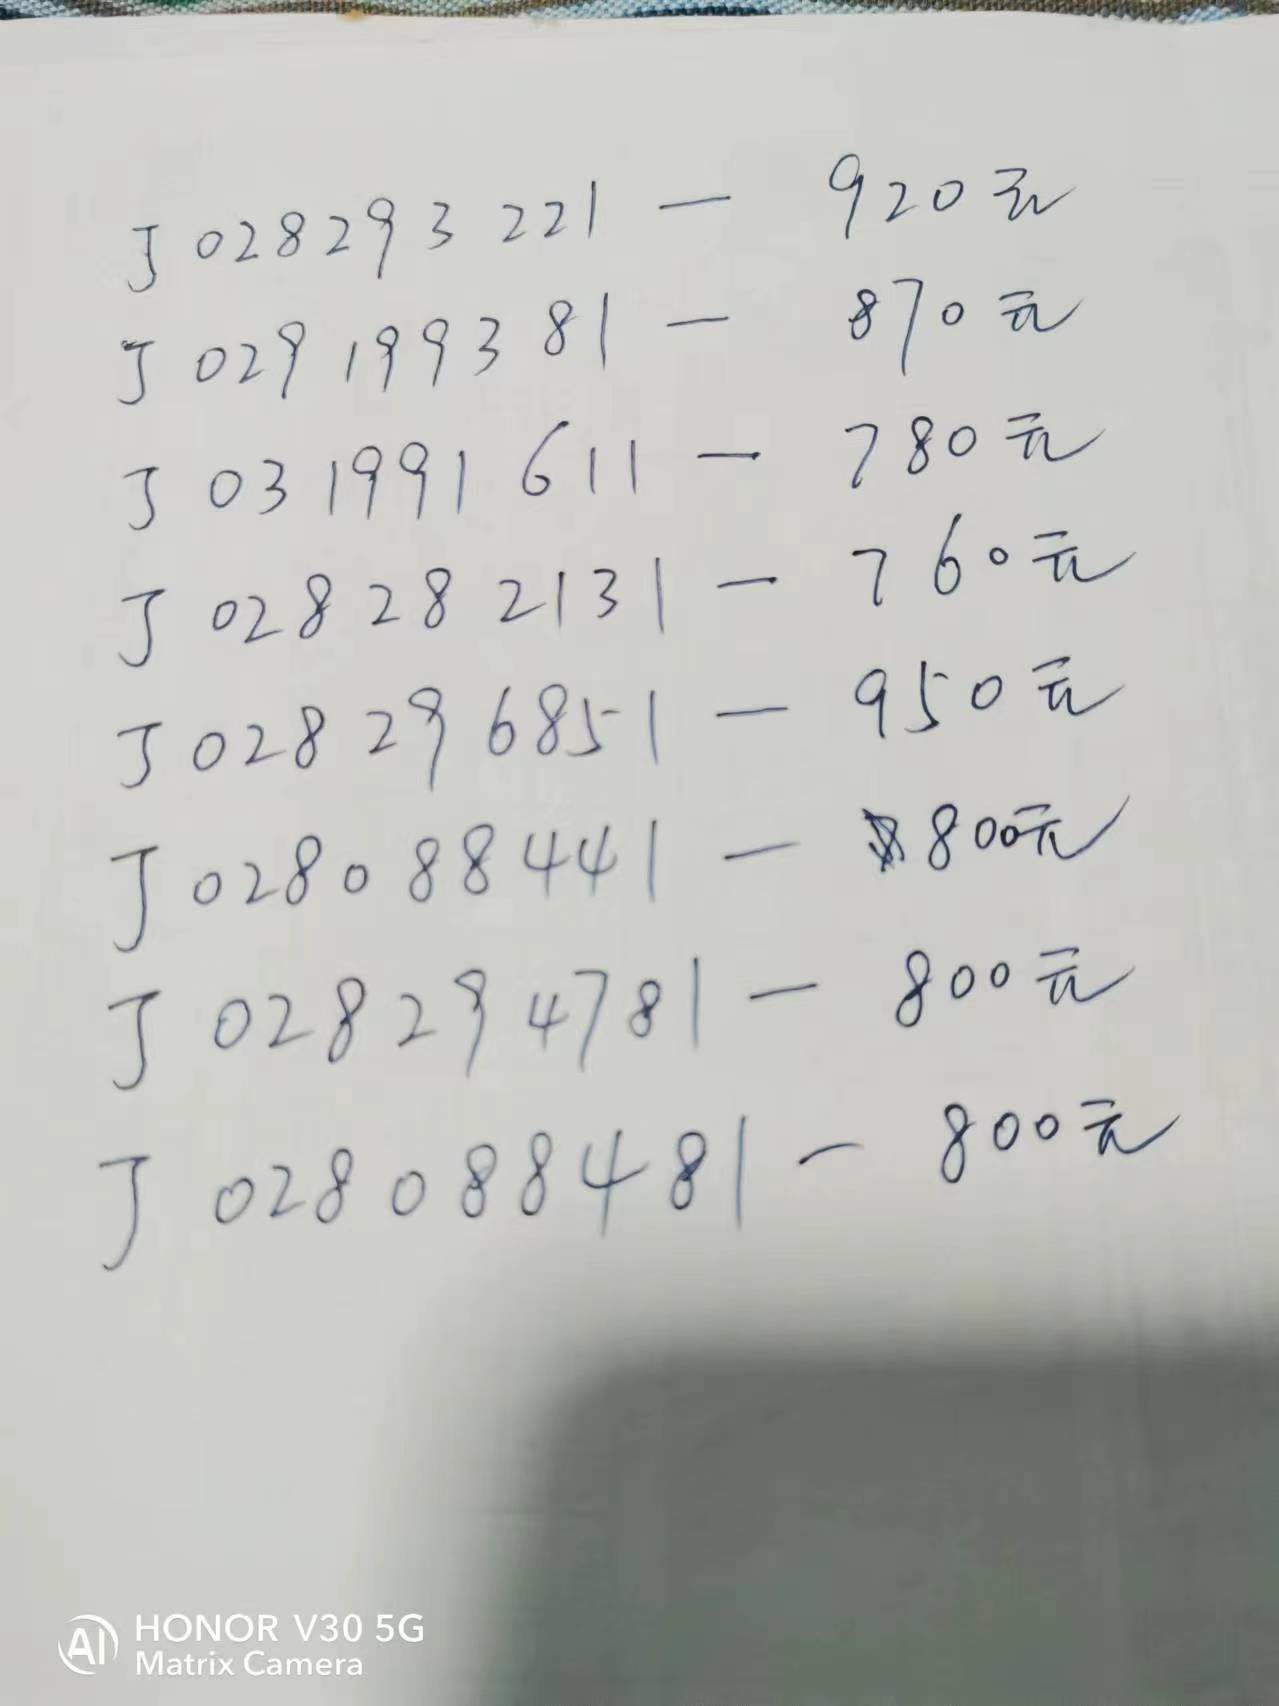 J028293221 — 920元
J029199381 — 870元
J031991611 — 780元
J028282131 — 760元
J028296851 — 950元
J028088441 — 800元
J028294781 — 800元
J028088481 — 800元
AI HONOR V30 5G
Matrix Camera